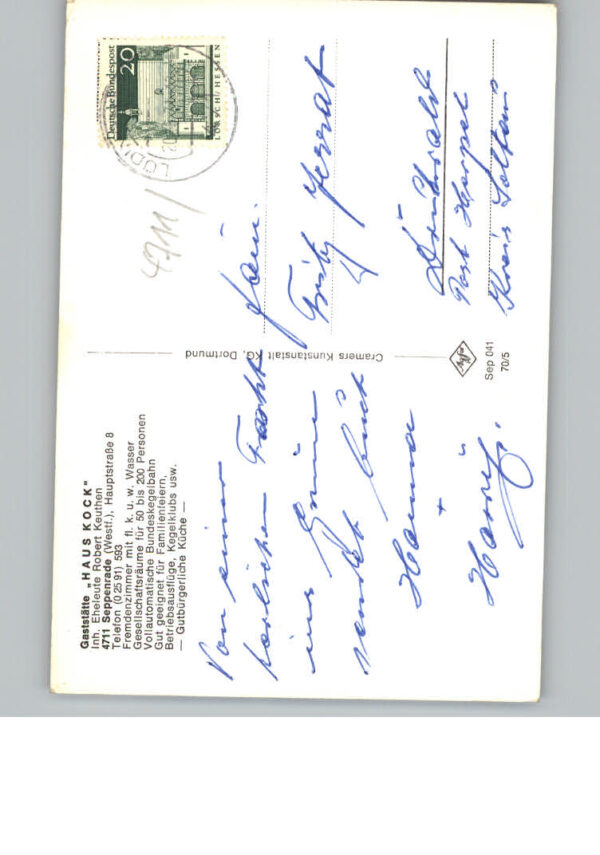 Gaststätte „HAUS KOCK"
Inh. Eheleute Robert Keuthen
4711 Seppenrade (Westf.), Hauptstraße 8
Telefon (0 25 91) 593
Fremdenzimmer mit fl. k. u. w. Wasser
Gesellschaftsräume für 50 bis 200 Personen
Vollautomatische Bundeskegelbahn
Gut geeignet für Familienfeiern,
Betriebsausflüge, Kegelklubs usw.
— Gutbürgerliche Küche —
Von einer
herlichen Fahrt
ins Grüne
sendet Euch
Hanna
+
Cramers Kunstanstalt KG, Dortmund
Agfa
Sep 041
70/5
Deutsche Bundespost
20
LORSCH / HESSEN
4711/
Fam.
Fritz
Post
Kreis Soltau